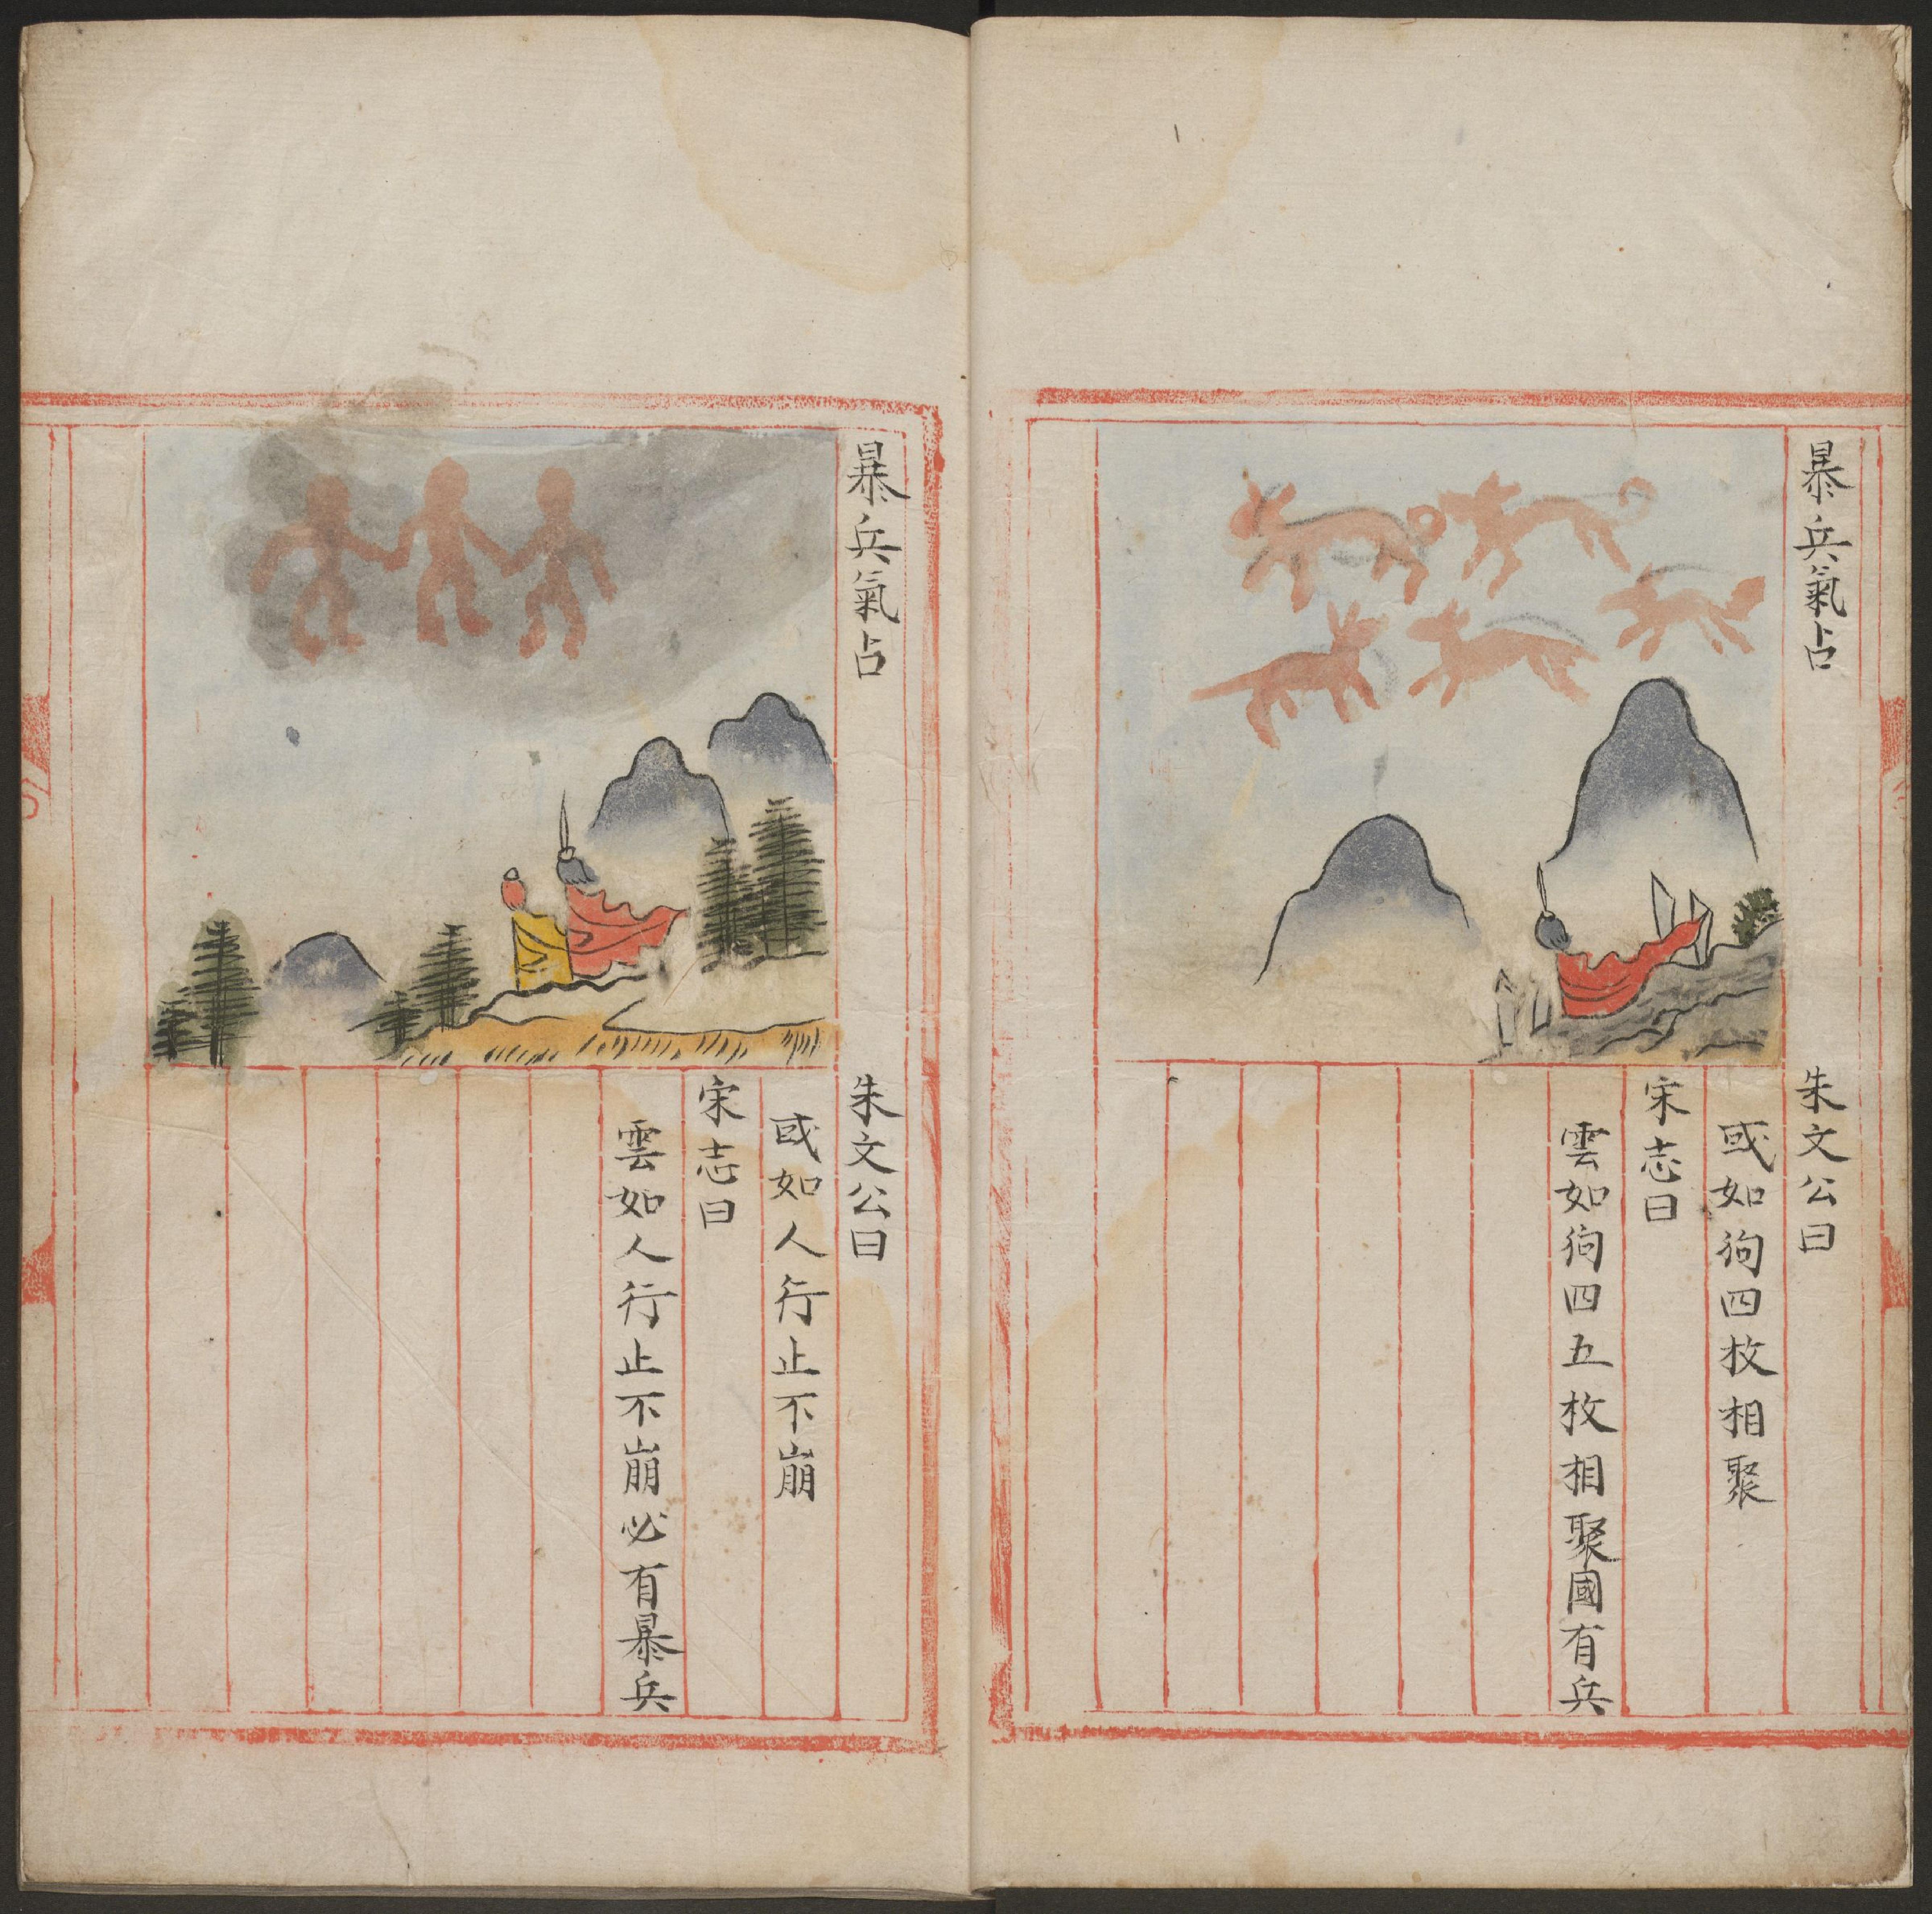 暴兵氣占
朱文公曰
或如狥四枚相聚
宋志曰
雲如狥四五枚相聚國有兵
暴兵氣占
朱文公曰
或如人行止不崩
宋志曰
雲如人行止不崩必有暴兵